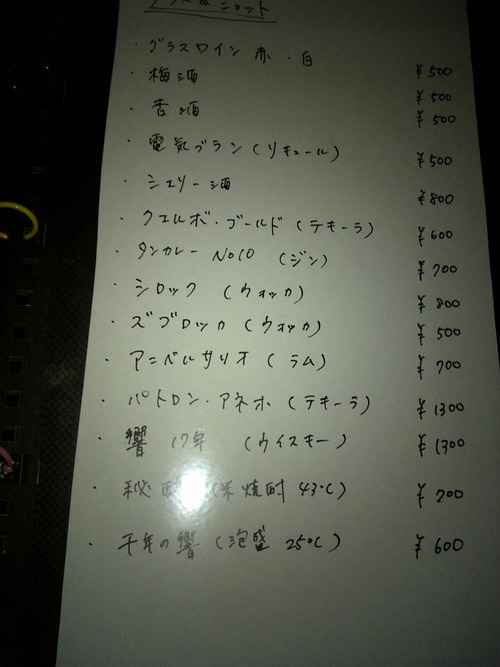 グラス & ショット
・グラスワイン 赤・白 ¥500
・梅酒 ¥500
・杏酒 ¥500
・電気ブラン(リキュール) ¥500
・シェリー酒 ¥800
・クエルボ・ゴールド(テキーラ) ¥600
・タンカレー No10 (ジン) ¥700
・シロック (ウォッカ) ¥800
・ズブロッカ(ウォッカ) ¥500
・アニベルサリオ(ラム) ¥700
・パトロン・アネホ(テキーラ) ¥1300
・響 17年 (ウイスキー) ¥1300
・秘酎 (米焼酎 43℃) ¥700
・千年の響(泡盛 25℃) ¥600